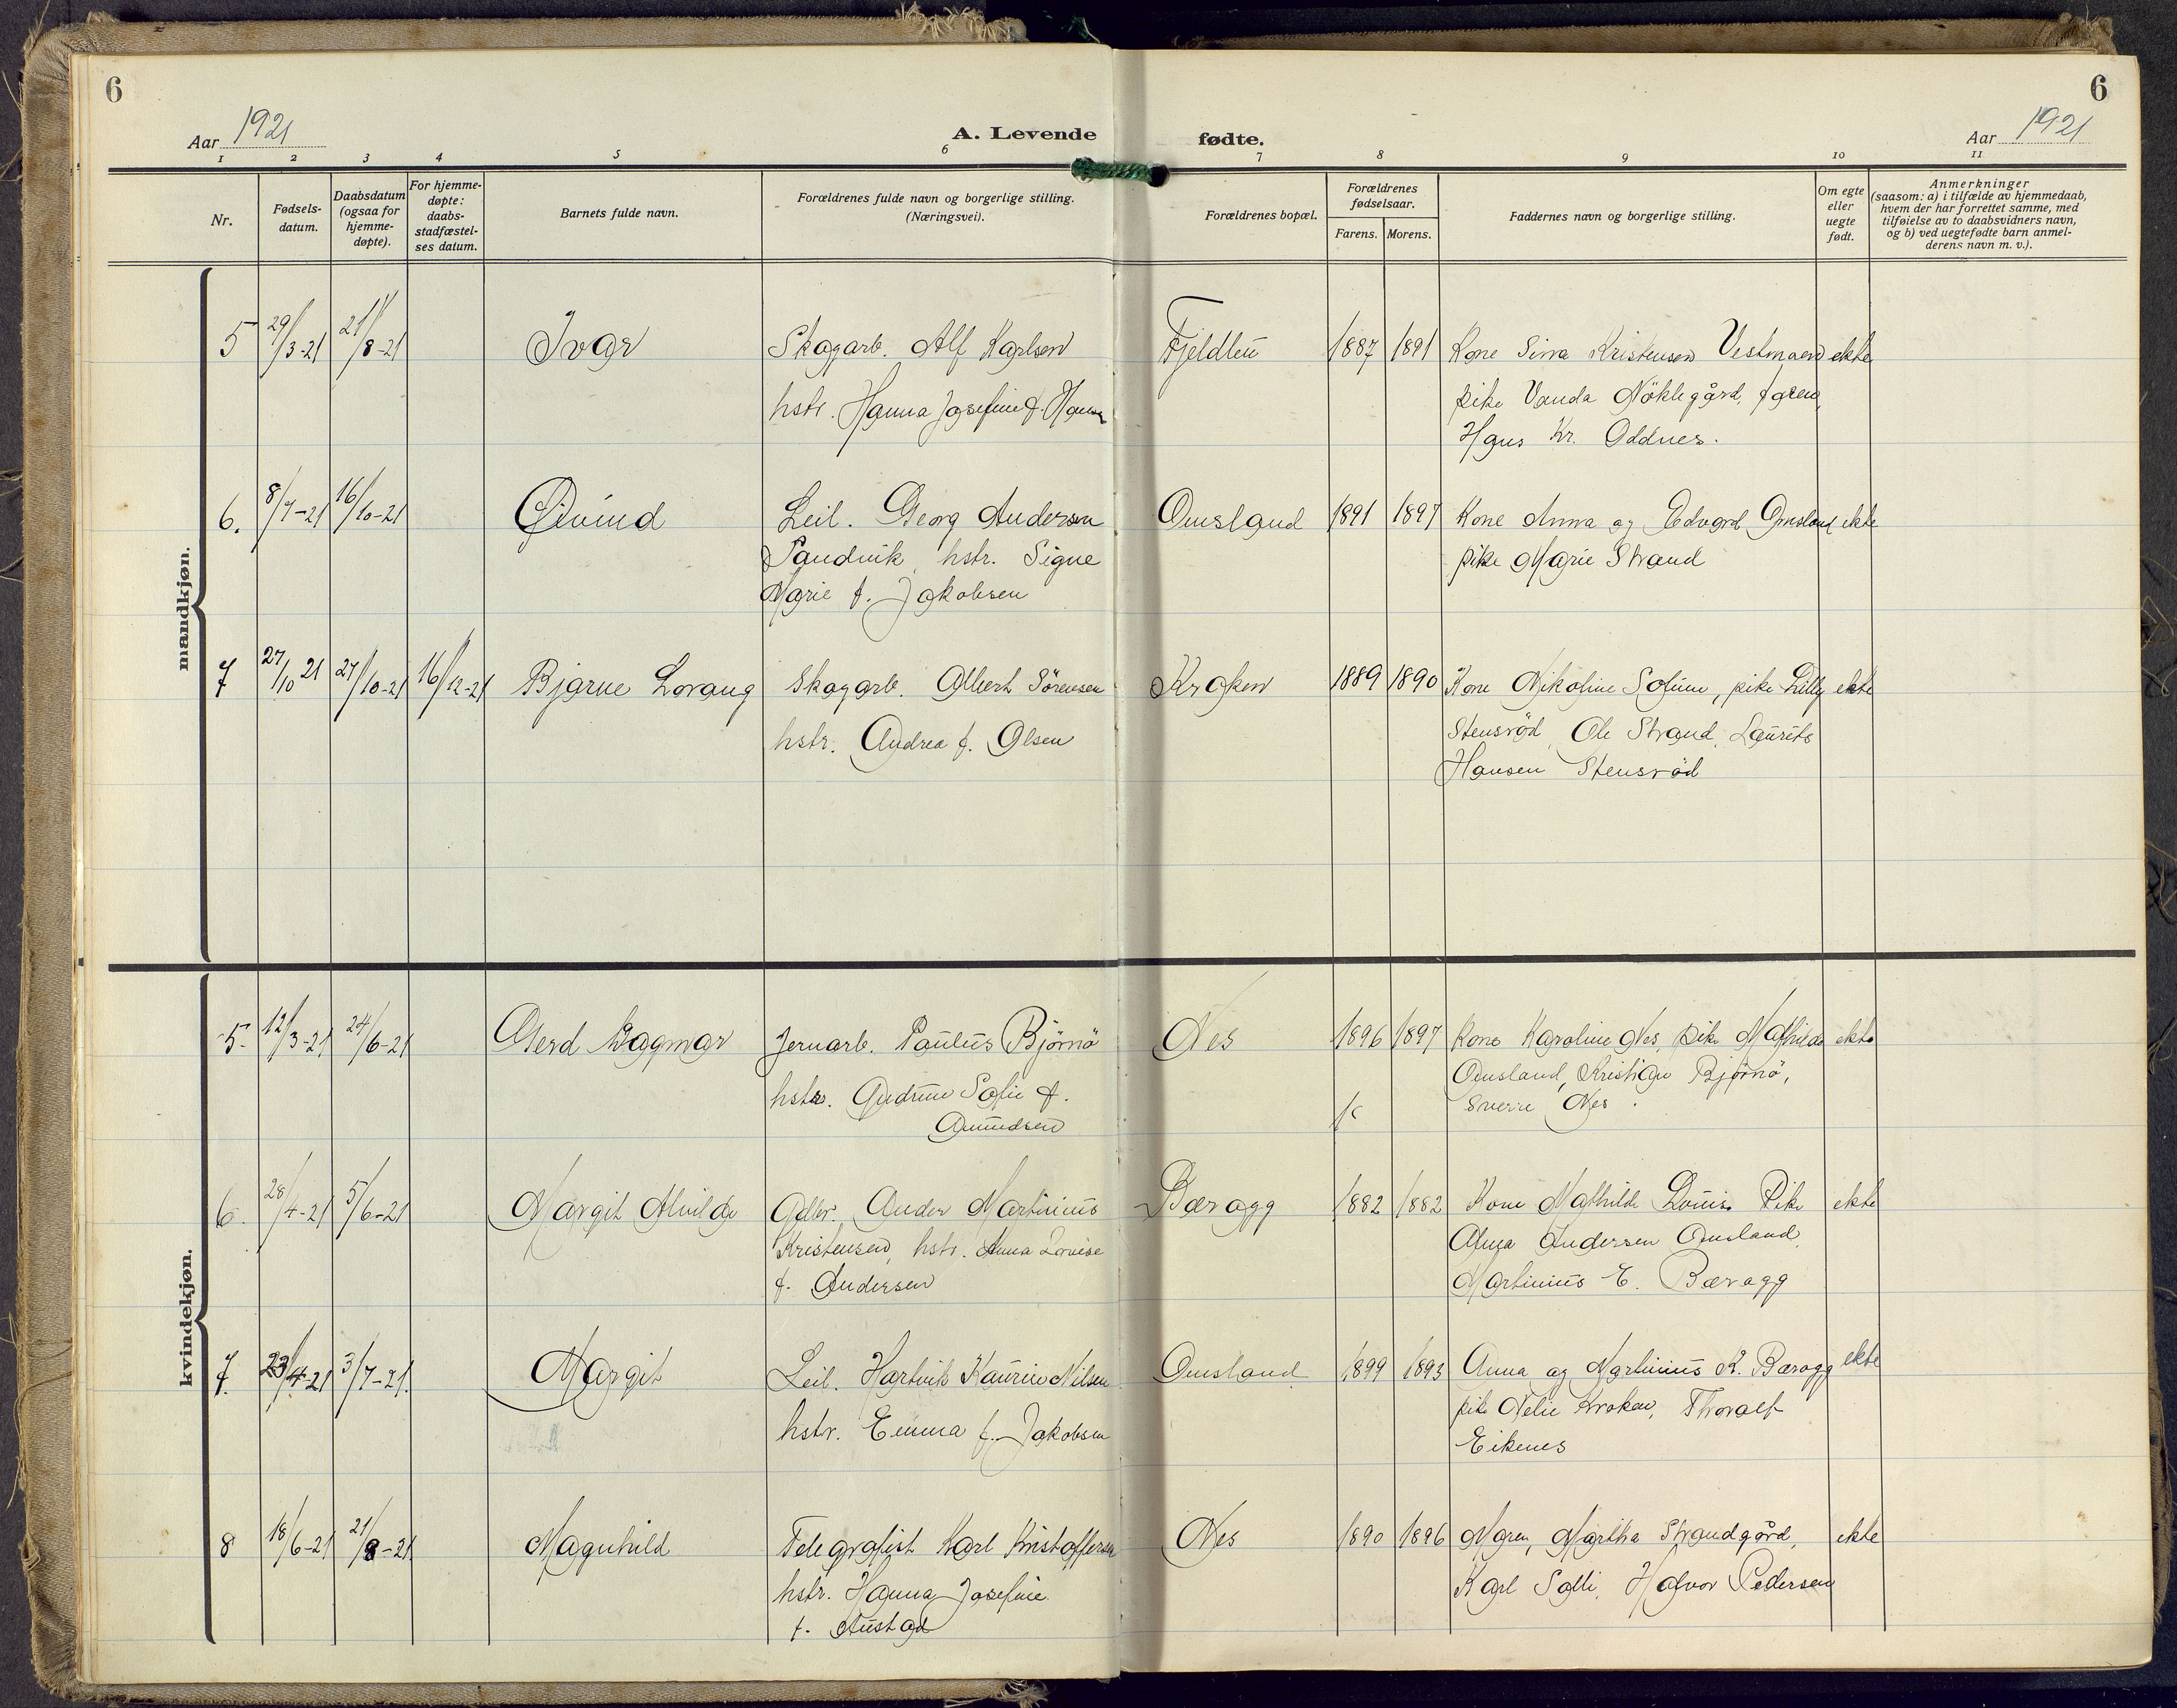 6
6
Aar 1921
A. Levende
fødte.
Aar 1921
1 2 3 4 5 6 7 8 9 10 11
Nr.
Fødsels-
datum.
Daabsdatum
(ogsaa for
hjemme-
døpte).
For hjemme-
døpte:
daabs-
stadfæstel-
ses datum.
Barnets fulde navn.
Forældrenes fulde navn og borgerlige stilling.
(Næringsvei).
Forældrenes bopæl.
Forældrenes
fødselsaar.
Farens. Morens.
Faddernes navn og borgerlige stilling.
Om egte
eller
uegte
født.
Anmerkninger
(saasom: a) i tilfælde av hjemmedaab,
hvem der har forrettet samme, med
tilføielse av to daabsvidners navn,
og b) ved uegtefødte barn anmel-
derens navn m. v.).
mandkjøn.
5 29/3-21 21/8-21 Ivar Skogarb. Alf Karlsen Fjeldleü 1887 1891 Kone Sina Kristensen Vestmaen ekte
hstr. Hanna Josefine f. Hansen pike Vanda Nöklegård, faren,
Hans Kr. Oddnes.
6. 8/7-21 16/10-21 Øivind Leil. Georg Andersen Omsland 1891 1897 Kone Anna og Edvard Omsland ekte
Sandvik, hstr. Signe pike Marie Strand
Marie f. Jakobsen
7 27/10 21 27/10-21 16/12-21 Bjarne Lovang Skogarb. Albert Sörensen Kroken 1889 1890 Kone Nikoline Solum, pike Lilly ekte
hstr. Andrea f. Olsen Stensröd, Ole Strand, Laurits
Hansen Stensröd
kvindekjøn.
5. 12/3-21 24/6-21 Gerd Dagmar Jernarb. Paulus Björnö Nes 1896 1897 Kone Karoline Nes, pike Mathilde ekte
hstr. Gudrun Sofie f. Omsland, Kristian Björnö,
Amundsen Sverre Nes.
6. 28/4-21 5/6-21 Margit Alvilde Gdbr. Ander Martinius Bæragg 1882 1882 Kone Mathilde Louise Pike ekte
Kristensen, hstr. Anna Lovise Alma Andersen Omsland,
f. Andersen Martinius E. Bæragg
7. 23/4-21 3/7-21. Margit Leil. Hartvik Kaurin Nilsen Omsland 1899 1893 Anna og Martinius K. Bæragg ekte
hstr. Emma f. Jakobsen pike Nelie Kroken, Thoralf
Eikenes
8 18/6-21 21/8-21 Magnhild Telegrafist Karl Kristoffersen Nes 1890 1896 Moren, Martha Strandgård, ekte
hstr. Hanna Josefine Karl Solli, Halvor Pedersen
f. Austad